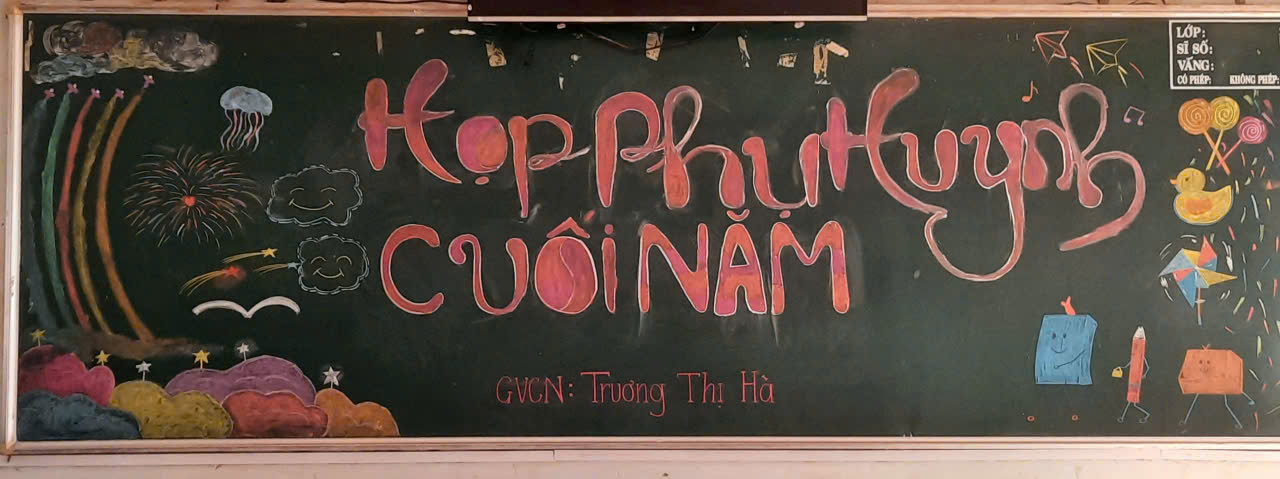 Họp Phụ Huynh
CUỐI NĂM
GVCN: Trương Thị Hà
LỚP:
SĨ SỐ:
VẮNG:
CÓ PHÉP: KHÔNG PHÉP: